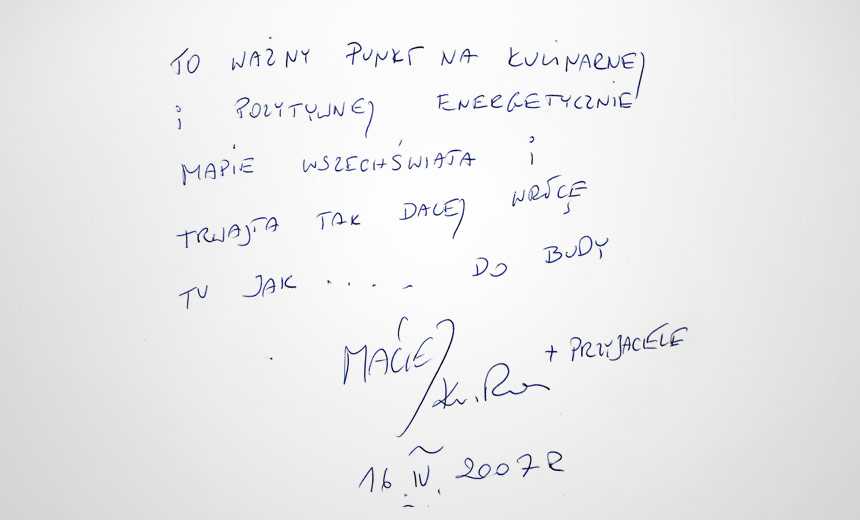 TO WAŻNY PUNKT NA KULINARNEJ
i POZYTYWNEJ ENERGETYCZNIE
MAPIE WSZECHŚWIATA i
TRWAJTA TAK DALEJ WRÓCĘ
TU JAK ..... DO BUDY
MACIEJ
+ PRZYJACIELE
16 IV. 2007 R